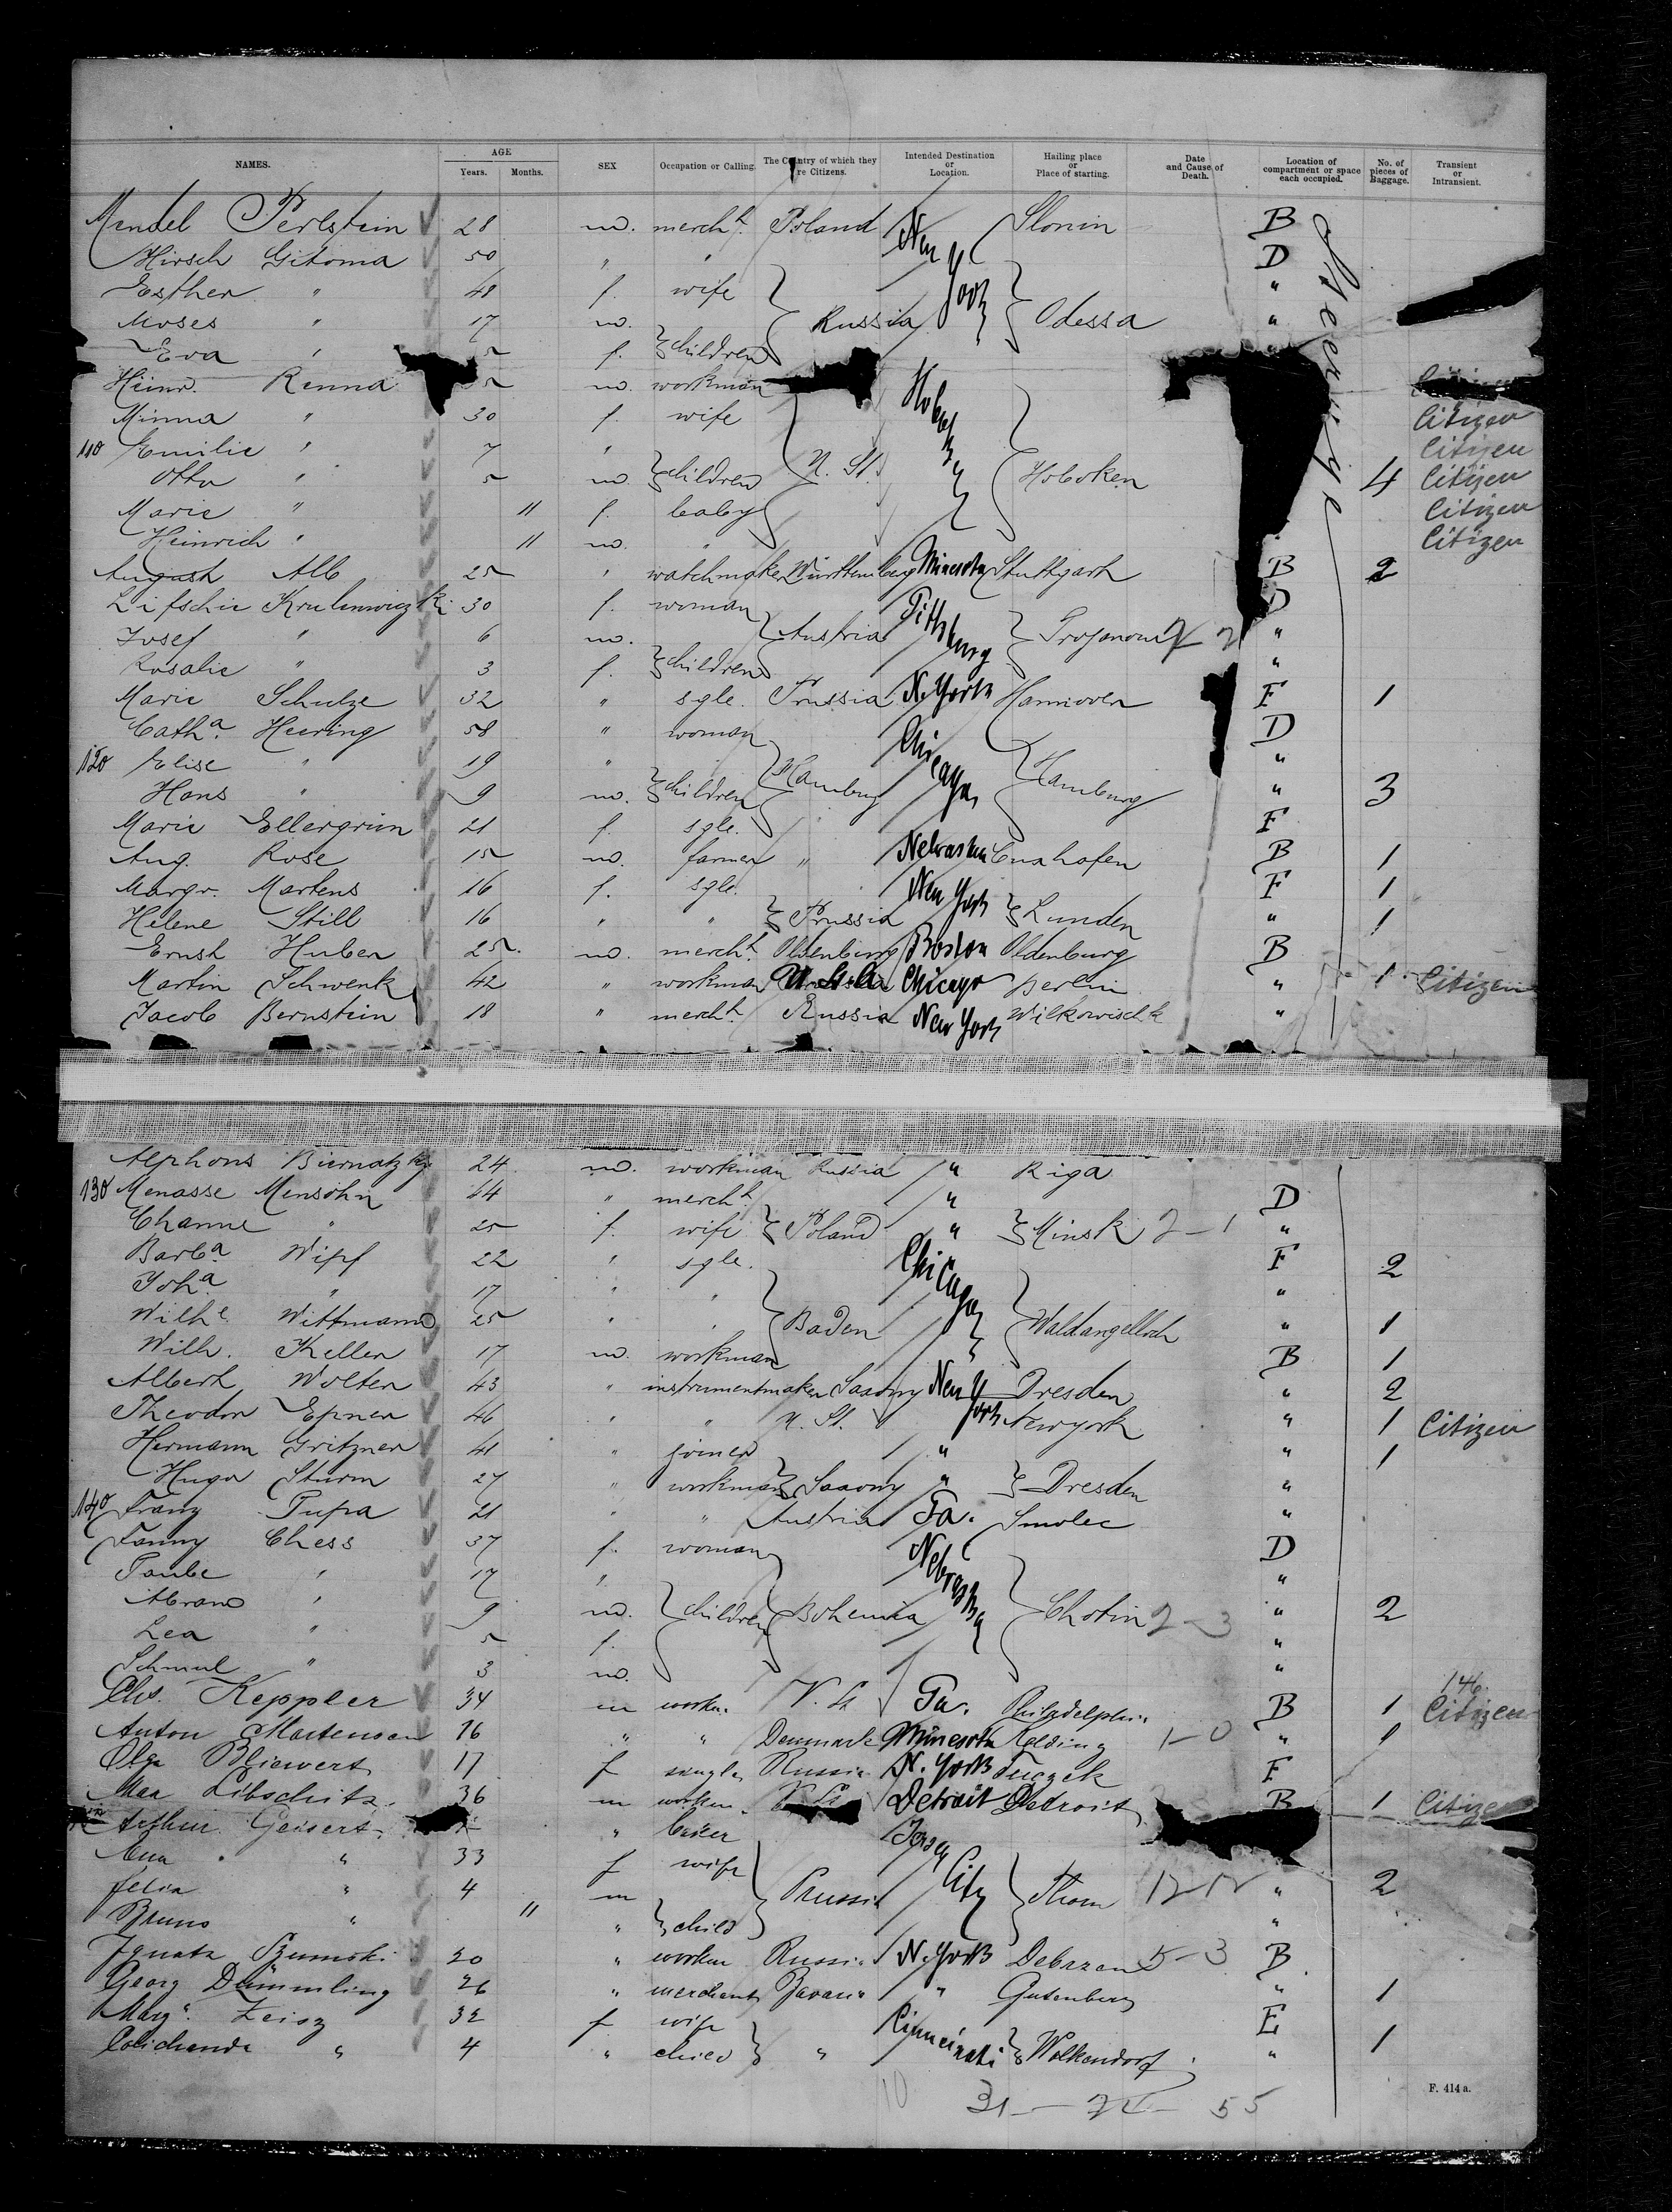 NAMES. AGE Years. Months. SEX Occupation or Calling. The Country of which they are Citizens. Intended Destination or Location. Hailing place or Place of starting. Date and Cause of Death. Location of compartment or space each occupied. No. of pieces of Baggage. Transient or Intransient.
Mendel Perlstein 28 m. merch.t Poland New York Slonin B Steerage
Hirsch Gitoma 50 " " D
Esther " 48 f. wife "
Moses " 17 m. children Russia Odessa "
Eva " f.
Heinr. Renna m. workman Hoboken
Minna " 30 f. wife Citizen
110 Emilie " 7 " Citizen
Otto " 5 m. children U. St. Hoboken 4 Citizen
Marie " 11 f. baby Citizen
Heinrich " 11 m. " Citizen
August Alb 25 " watchmaker Württemberg Minesota Stuttgart B 2
Lifschie 30 f. woman Pittsburg D
Josef " 6 m. children Austria "
Rosalie " 3 f. "
Marie Schulze 32 " sgle. Prussia N. York Hannover F 1
Cath.a Heering 58 " woman Chicago D
120 Elise " 19 " "
Hans " 9 m. children Hamburg Hamburg " 3
Marie Ellergrün 21 f. sgle. F
Aug. Rose 15 m. farmer " Nebraska Cuxhafen B 1
Margr. Martens 16 f. sgle. New York F 1
Helene Still 16 " " Prussia Lunden " 1
Ernst Huber 25 m. merch.t Oldenburg Boston Oldenburg B
Martin Schwenk 42 " workman Chicago Berlin " 1 Citizen
Jacob Bernstein 18 " merch.t Russia New York Wilkowischk "
Alphons Biernatzky 24 m. workman Russia " Riga
130 Menasse Mensohn 44 " merch.t " D
Channe " 25 f. wife Poland " Minsk 2-1 "
Barb.a Wipf 22 " sgle. Chicago F 2
Joh.a " 17 " " "
Wilh.e Wittmann 25 " " Baden Waldangelloch " 1
Wilh. Keller 17 m. workman B 1
Albert Wolter 43 " instrumentmaker Saxony New York Dresden " 2
Theodor Epner 46 " " U. St. Newyork " 1 Citizen
Hermann Gritzner 41 " joiner " " 1
Hugo Sturm 27 " workman Saxony " Dresden "
140 Franz Pupa 21 " " Austria Pa. Smolec "
Fanny Chess 37 f. woman Nebraska D
Taube " 17 " "
Abram " 9 m. children Bohemia Chotin 2-3 " 2
Lea " 5 f. "
Schmul " 3 m. "
146
Chs. Keppler 34 m workm. U. St. Pa. Philadelphia B 1 Citizen
Anton Martensen 16 " " Denmark Minesota Kolding 1-0 " 1
Olga Bliewert 17 f single Russia N. York F
Max Libschitz 36 m workm. Detroit Detroit B 1 Citizen
Arthur Geisert " Jersey City
" 33 f wife
Felix " 4 m Prussia Thorn " 2
Bruno " 11 " child "
Ignatz 20 " workm Russia N. York 5-3 B
Georg Dümmling 26 " merchant Bavaria " Gutenberg " 1
Marg.a Zeisz 32 f wife Cinncinati E
" 4 " child " Wolkendorf " 1
10 31 55
F. 414 a.